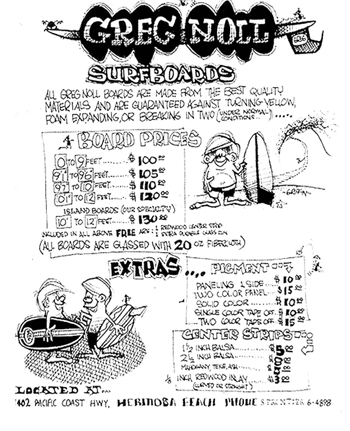 GREG NOLL
SURFBOARDS
ALL GREG NOLL BOARDS ARE MADE FROM THE BEST QUALITY
MATERIALS AND ARE GUARANTEED AGAINST TURNING YELLOW,
FOAM EXPANDING, OR BREAKING IN TWO (UNDER NORMAL CONDITIONS)....
BOARD PRICES
0 TO 9 FEET..... $ 100.00
9'1" TO 9'6" FEET.... $ 105.00
9'7" TO 10 FEET.... $ 110.00
10'1" TO 12 FEET.... $ 120.00
ISLAND BOARDS (OUR SPECIALTY)
TO 12 FEET..... $ 130.00
INCLUDED IN ALL ABOVE FREE ARE: 1 REDWOOD CENTER STRIP
(ALL BOARDS ARE GLASSED WITH 20 OZ FIBERGLOTH)
EXTRAS....
PIGMENT
PANELING 1 SIDE.. $ 10.00
TWO COLOR PANEL $ 15.00
SOLID COLOR..... $ 10.00
SINGLE COLOR TAPE OFF. $ 10.00
TWO COLOR TAPE OFF. $ 15
CENTER STRIPS
1 1/2 INCH BALSA.... $ 5.00
2 1/2 INCH BALSA....
MAHOGANY, TEAK, ASH
INCH REDWOOD INLAY
(CURVED OR STRAIGHT)
LOCATED AT...
1402 PACIFIC COAST HWY. HERMOSA BEACH PHONE FRONTIER 6-4898